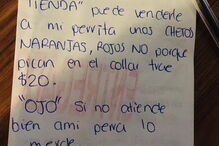 TIENDA" puede venderle
a mi perrita unos CHETOS
NARANJAS, ROJOS NO porque
pican en el collar trae
$20.
"OJO" Si no atiende
bien ami perra lo
muerde